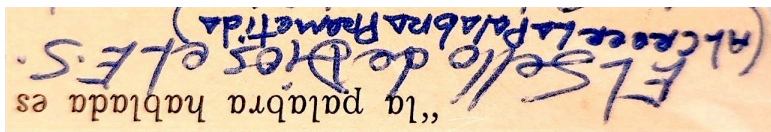 "la palabra hablada es
EL Sello de Dios el E.S.
(AL CREER LA Palabra Prometida)